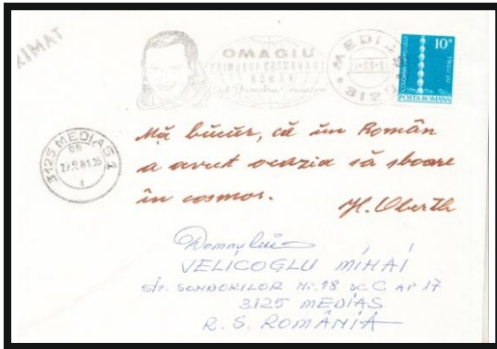 OMAGIU
PRIMULUI COSMONAUT
ROMÂN
10 B
POSTA ROMANA
3125 MEDIAS 1
Mă bucur, că un Român
a avut ocazia să sboare
în cosmos.
H. Oberth
Domnului
VELICOGLU MIHAI
str. SONDORILOR Nr. 18 sc C AP 17
3125 MEDIAS
R. S. ROMÂNIA